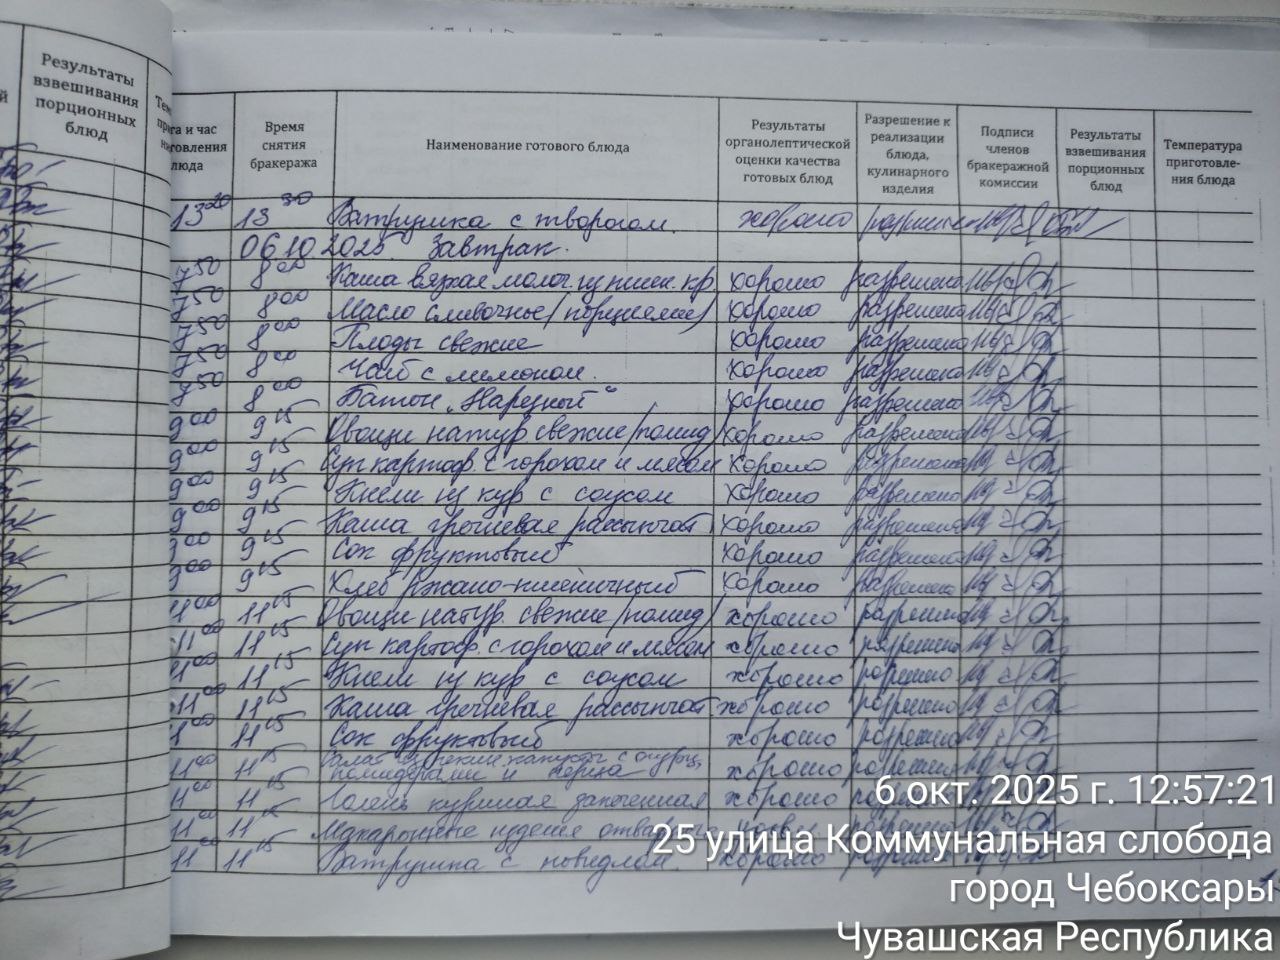 Результаты взвешивания порционных блюд
Время снятия бракеража
Наименование готового блюда
Результаты органолептической оценки качества готовых блюд
Разрешение к реализации блюда, кулинарного изделия
Подписи членов бракеражной комиссии
Результаты взвешивания порционных блюд
Температура приготовле-ния блюда
13 20 13 30 Ватрушка с творогом. хорошо
06.10.2025 Завтрак.
7 50 8 00 Каша вязкая молоч. из пшен. кр. хорошо разрешено
7 50 8 00 Масло сливочное (порциями) хорошо разрешено
7 50 8 00 Плоды свежие хорошо разрешено
7 50 8 00 Чай с лимоном. хорошо разрешено
7 50 8 00 Батон „Нарезной“ хорошо разрешено
9 00 9 15 Овощи натур свежие (помид) хорошо разрешено
9 00 9 15 Суп картоф. с горохом и мясом хорошо разрешено
9 00 9 15 Кнели из кур с соусом хорошо разрешено
9 00 9 15 Каша гречневая рассыпчат хорошо разрешено
9 00 9 15 Сок фруктовый хорошо разрешено
9 00 9 15 Хлеб ржано-пшеничный хорошо разрешено
11 00 11 15 Овощи натур. свежие (помид) хорошо разрешено
11 00 11 15 Суп картоф. с горохом и мясом хорошо разрешено
11 00 11 15 Кнели из кур с соусом хорошо разрешено
11 00 11 15 Каша гречневая рассыпчат. хорошо разрешено
11 00 11 15 Сок фруктовый хорошо разрешено
11 00 11 15 Салат из свежих капусты с огурц, помидорами и перца хорошо
11 00 11 15 Голень куриная запеченная хорошо
11 00 11 15 Макаронные изделия отварн
11 00 11 15 Ватрушка с повидлом. хорошо
6 окт. 2025 г. 12:57:21
25 улица Коммунальная слобода
город Чебоксары
Чувашская Республика